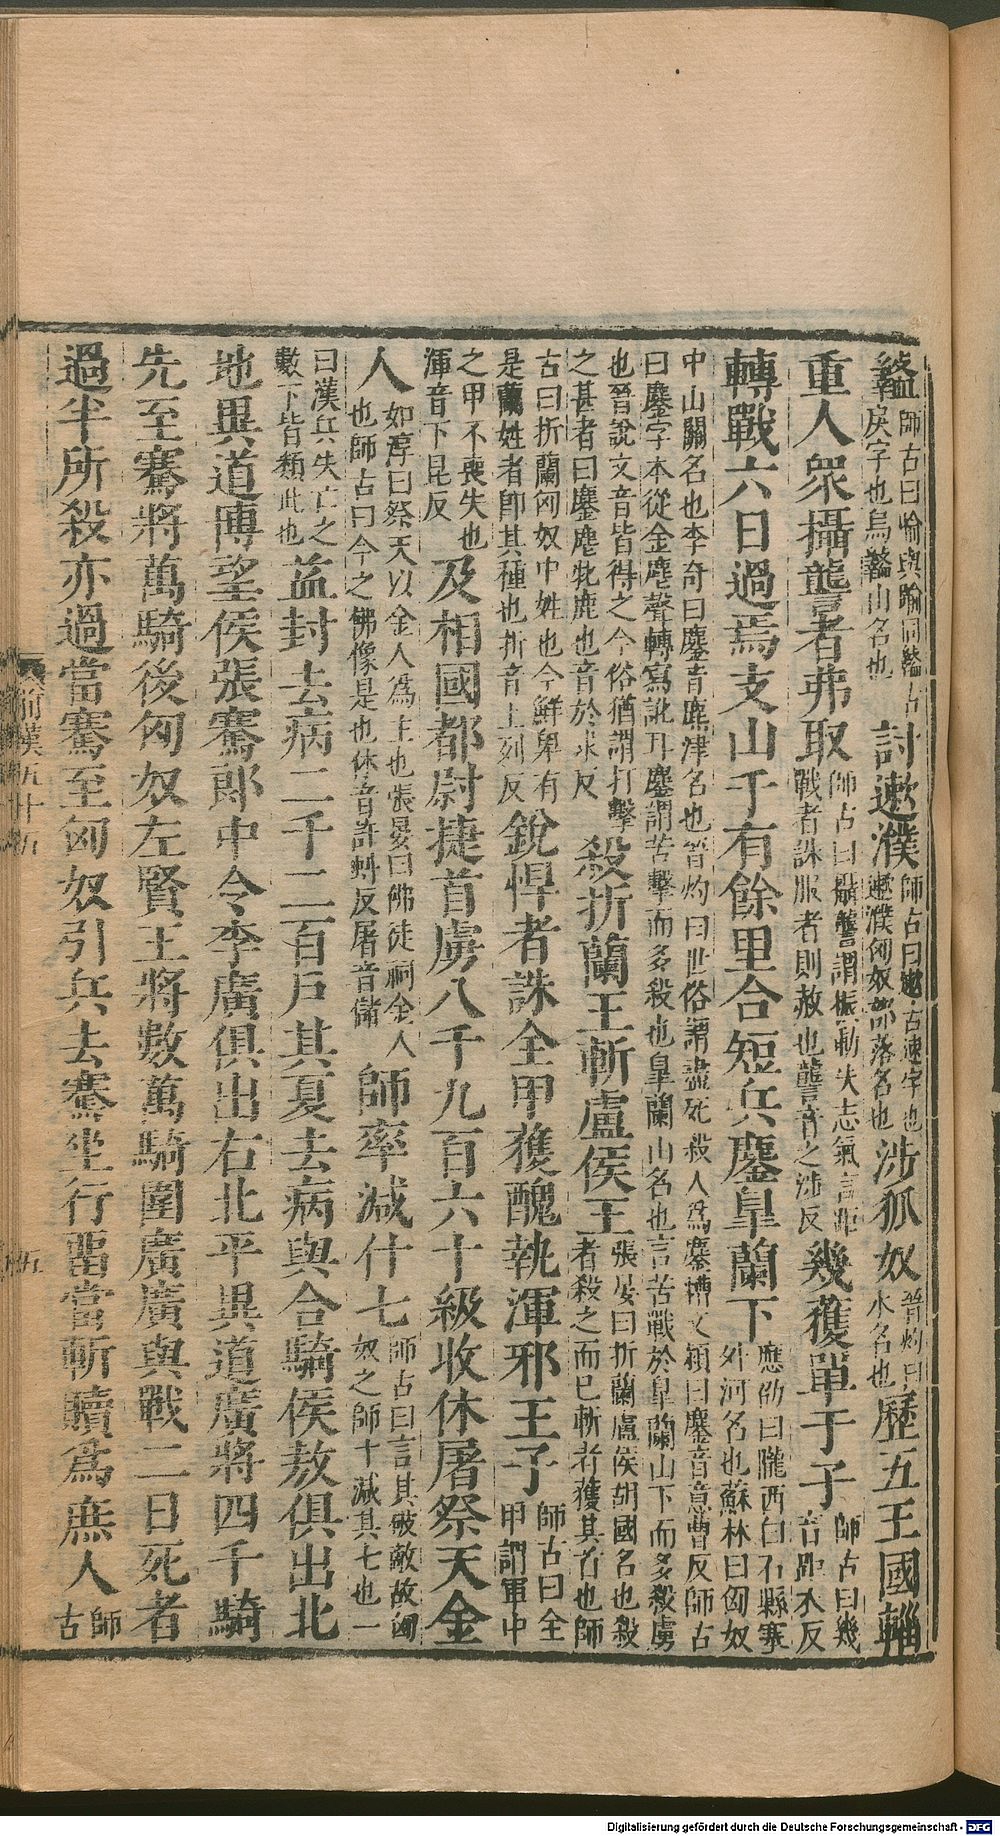 盭師古曰隃與踰同盭古戾字也烏盭山名也討遫濮師古曰遫古速字也遫濮匈奴部落名也涉狐奴晉灼曰水名也歷五王國輜
重人衆攝讋者弗取師古曰攝讋謂振動失志氣言距戰者誅服者則赦也讋音之涉反幾獲單于子師古曰幾音鉅衣反
轉戰六日過焉支山千有餘里合短兵鏖皐蘭下應劭曰隴西白石縣塞外河名也蘇林曰匈奴
中山關名也李奇曰鏖音麃津名也晉灼曰世俗謂盡死殺人爲鏖糟文穎曰鏖音意曹反師古
曰鏖字本從金麀聲轉寫訛耳鏖謂苦擊而多殺也皐蘭山名也言苦戰於皐蘭山下而多殺虜
也晉說文音皆得之今俗猶謂打擊之甚者曰鏖麀牝鹿也音於求反殺折蘭王斬盧侯王張晏曰折蘭盧侯胡國名也殺者殺之而已斬者獲其首也師
古曰折蘭匈奴中姓也今鮮卑有是蘭姓者即其種也折音上列反銳悍者誅全甲獲醜執渾邪王子師古曰全甲謂軍中
之甲不喪失也渾音下昆反及相國都尉捷首虜八千九百六十級收休屠祭天金
人如淳曰祭天以金人爲主也張晏曰佛徒祠金人也師古曰今之佛像是也休音許虯反屠音儲師率減什七師古曰言其破敵故匈奴之師十減其七也一
曰漢兵失亡之數下皆類此也益封去病二千二百戶其夏去病與合騎侯敖俱出北
地異道博望侯張騫郎中令李廣俱出右北平異道廣將四千騎
先至騫將萬騎後匈奴左賢王將數萬騎圍廣廣與戰二日死者
過半所殺亦過當騫至匈奴引兵去騫坐行畱當斬贖爲庶人師古
前漢五十五
五
Digitalisierung gefördert durch die Deutsche Forschungsgemeinschaft - DFG